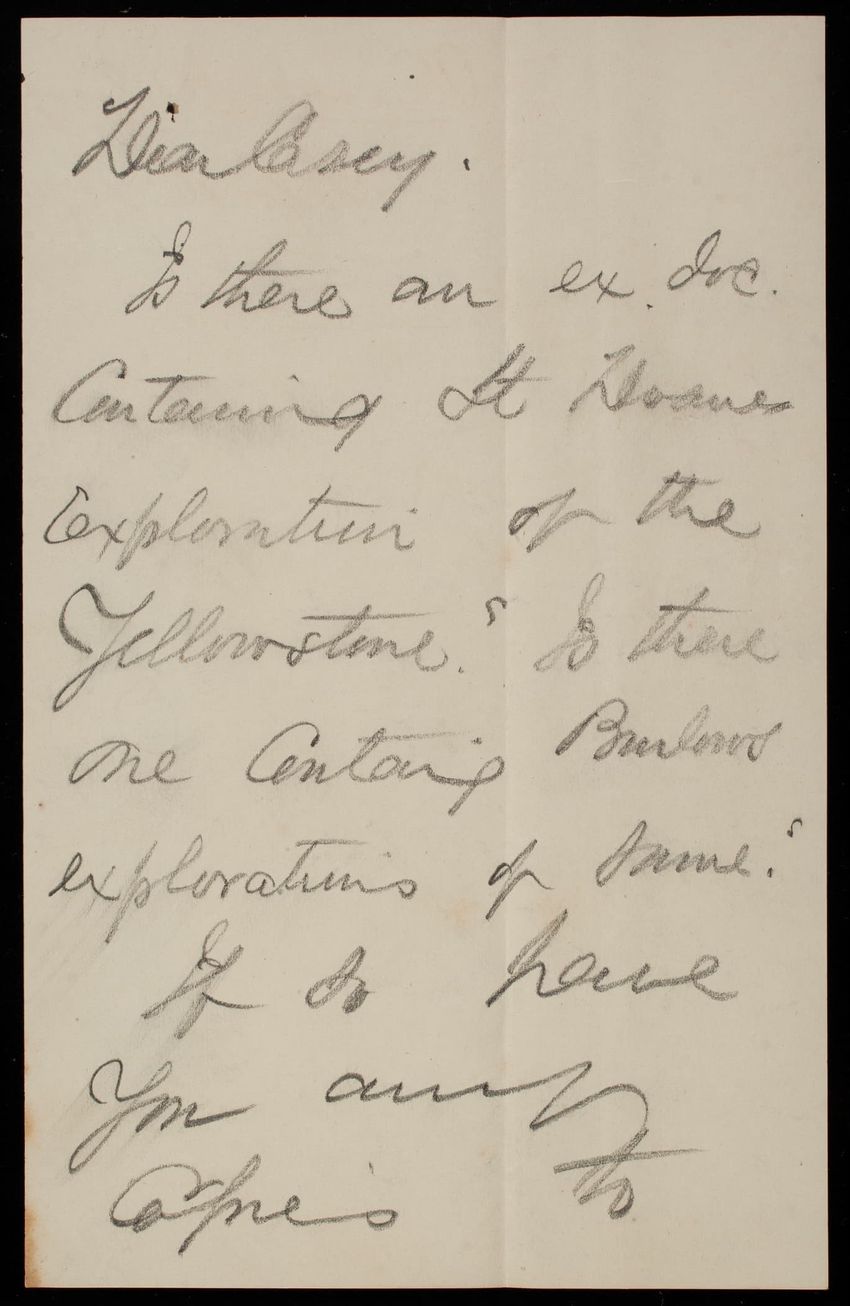 Dear Casey.
Is there an ex. doc.
Containing Lt Doanes
Exploration of the
Yellowstone? Is there
one Containg Barlows
explorations of same?
If so have
You any
Copies to